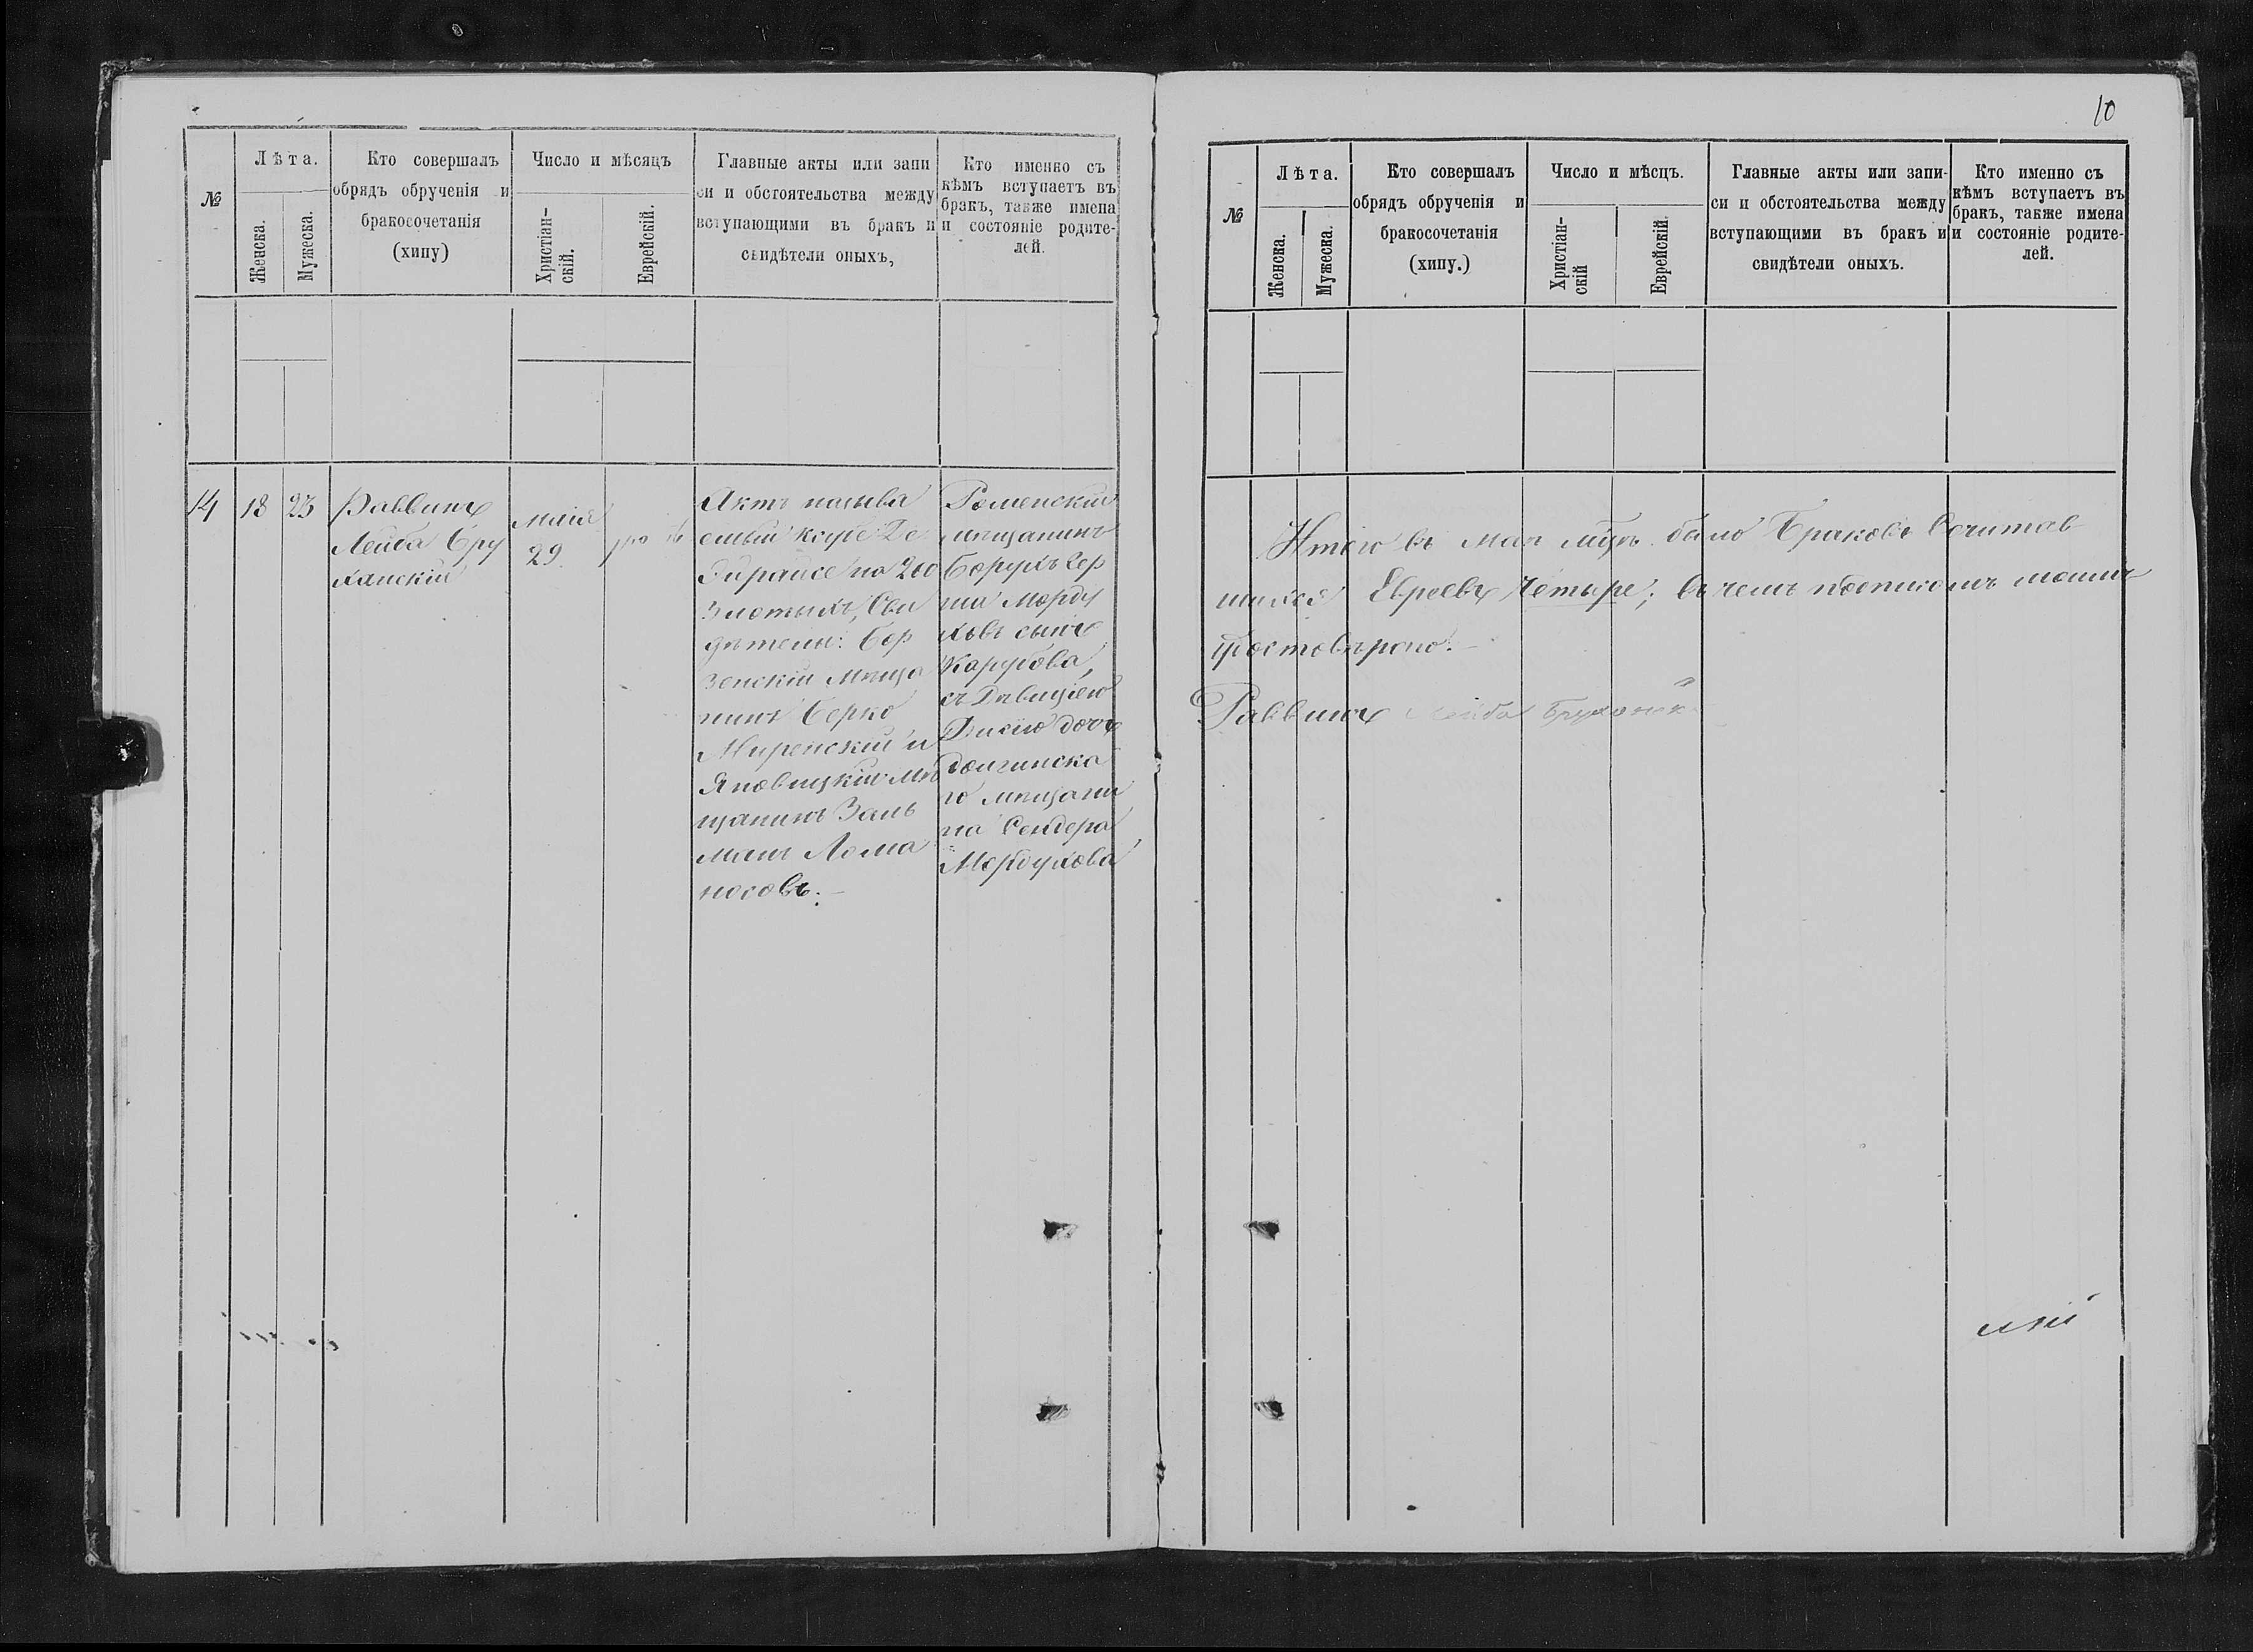 10
№
Лѣта.
Женска.
Мужеска.
Кто совершалъ
обрядъ обрученія и
бракосочетанія
(хипу)
Число и мѣсяцъ
Христіан-
скій.
Еврейскій.
Главные акты или запи
си и обстоятельства между
вступающими въ бракъ и
свидѣтели оныхъ,
Кто именно съ
кѣмъ вступаетъ въ
бракъ, также имена
и состояніе родите-
лей.
14
18
23
Раввинъ
Лейба Бру
ханскій
Маія
29
Актъ называ
емый
на 200
Злотыхъ, Сви
дѣтели: Бор
зенскій Мѣща
нинъ Берко
Миренскій и
Яновицкій Мѣ
щанинъ Заль
манъ Лома
носовъ.
Роменскій
мѣщанинъ
Борухъ Гер
ша Морду
ховъ сынъ
съ дѣвицею
дочь
го мѣщани
на Сендера
Мордухова
№
Лѣта.
Женска.
Мужеска.
Кто совершалъ
обрядъ обрученія и
бракосочетанія
(хипу.)
Число и мѣсцъ.
Христіан-
скій
Еврейскій.
Главные акты или запи-
си и обстоятельства между
вступающими въ бракъ и
свидѣтели оныхъ.
Кто именно съ
кѣмъ вступаетъ въ
бракъ, также имена
и состояніе родите-
лей.
Итого въ маѣ мцѣ было Браковъ Сочитав
шихся Евреевъ Четыре; въ чемъ подписомъ моимъ
удостовѣряю.
Раввинъ Лейба Брухонск